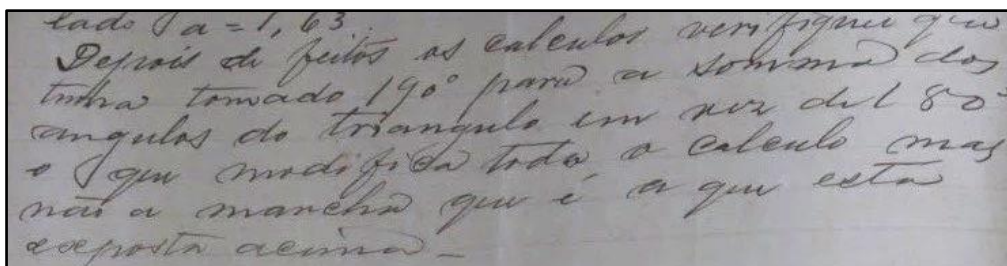 lado a = 1,63.
Depois de feitos os calculos verifiquei que
tinha tomado 190° para a somma dos
angulos do triangulo em vez de 180°
o que modifica todo o calculo mas
não a marcha que é a que está
exposta acima –